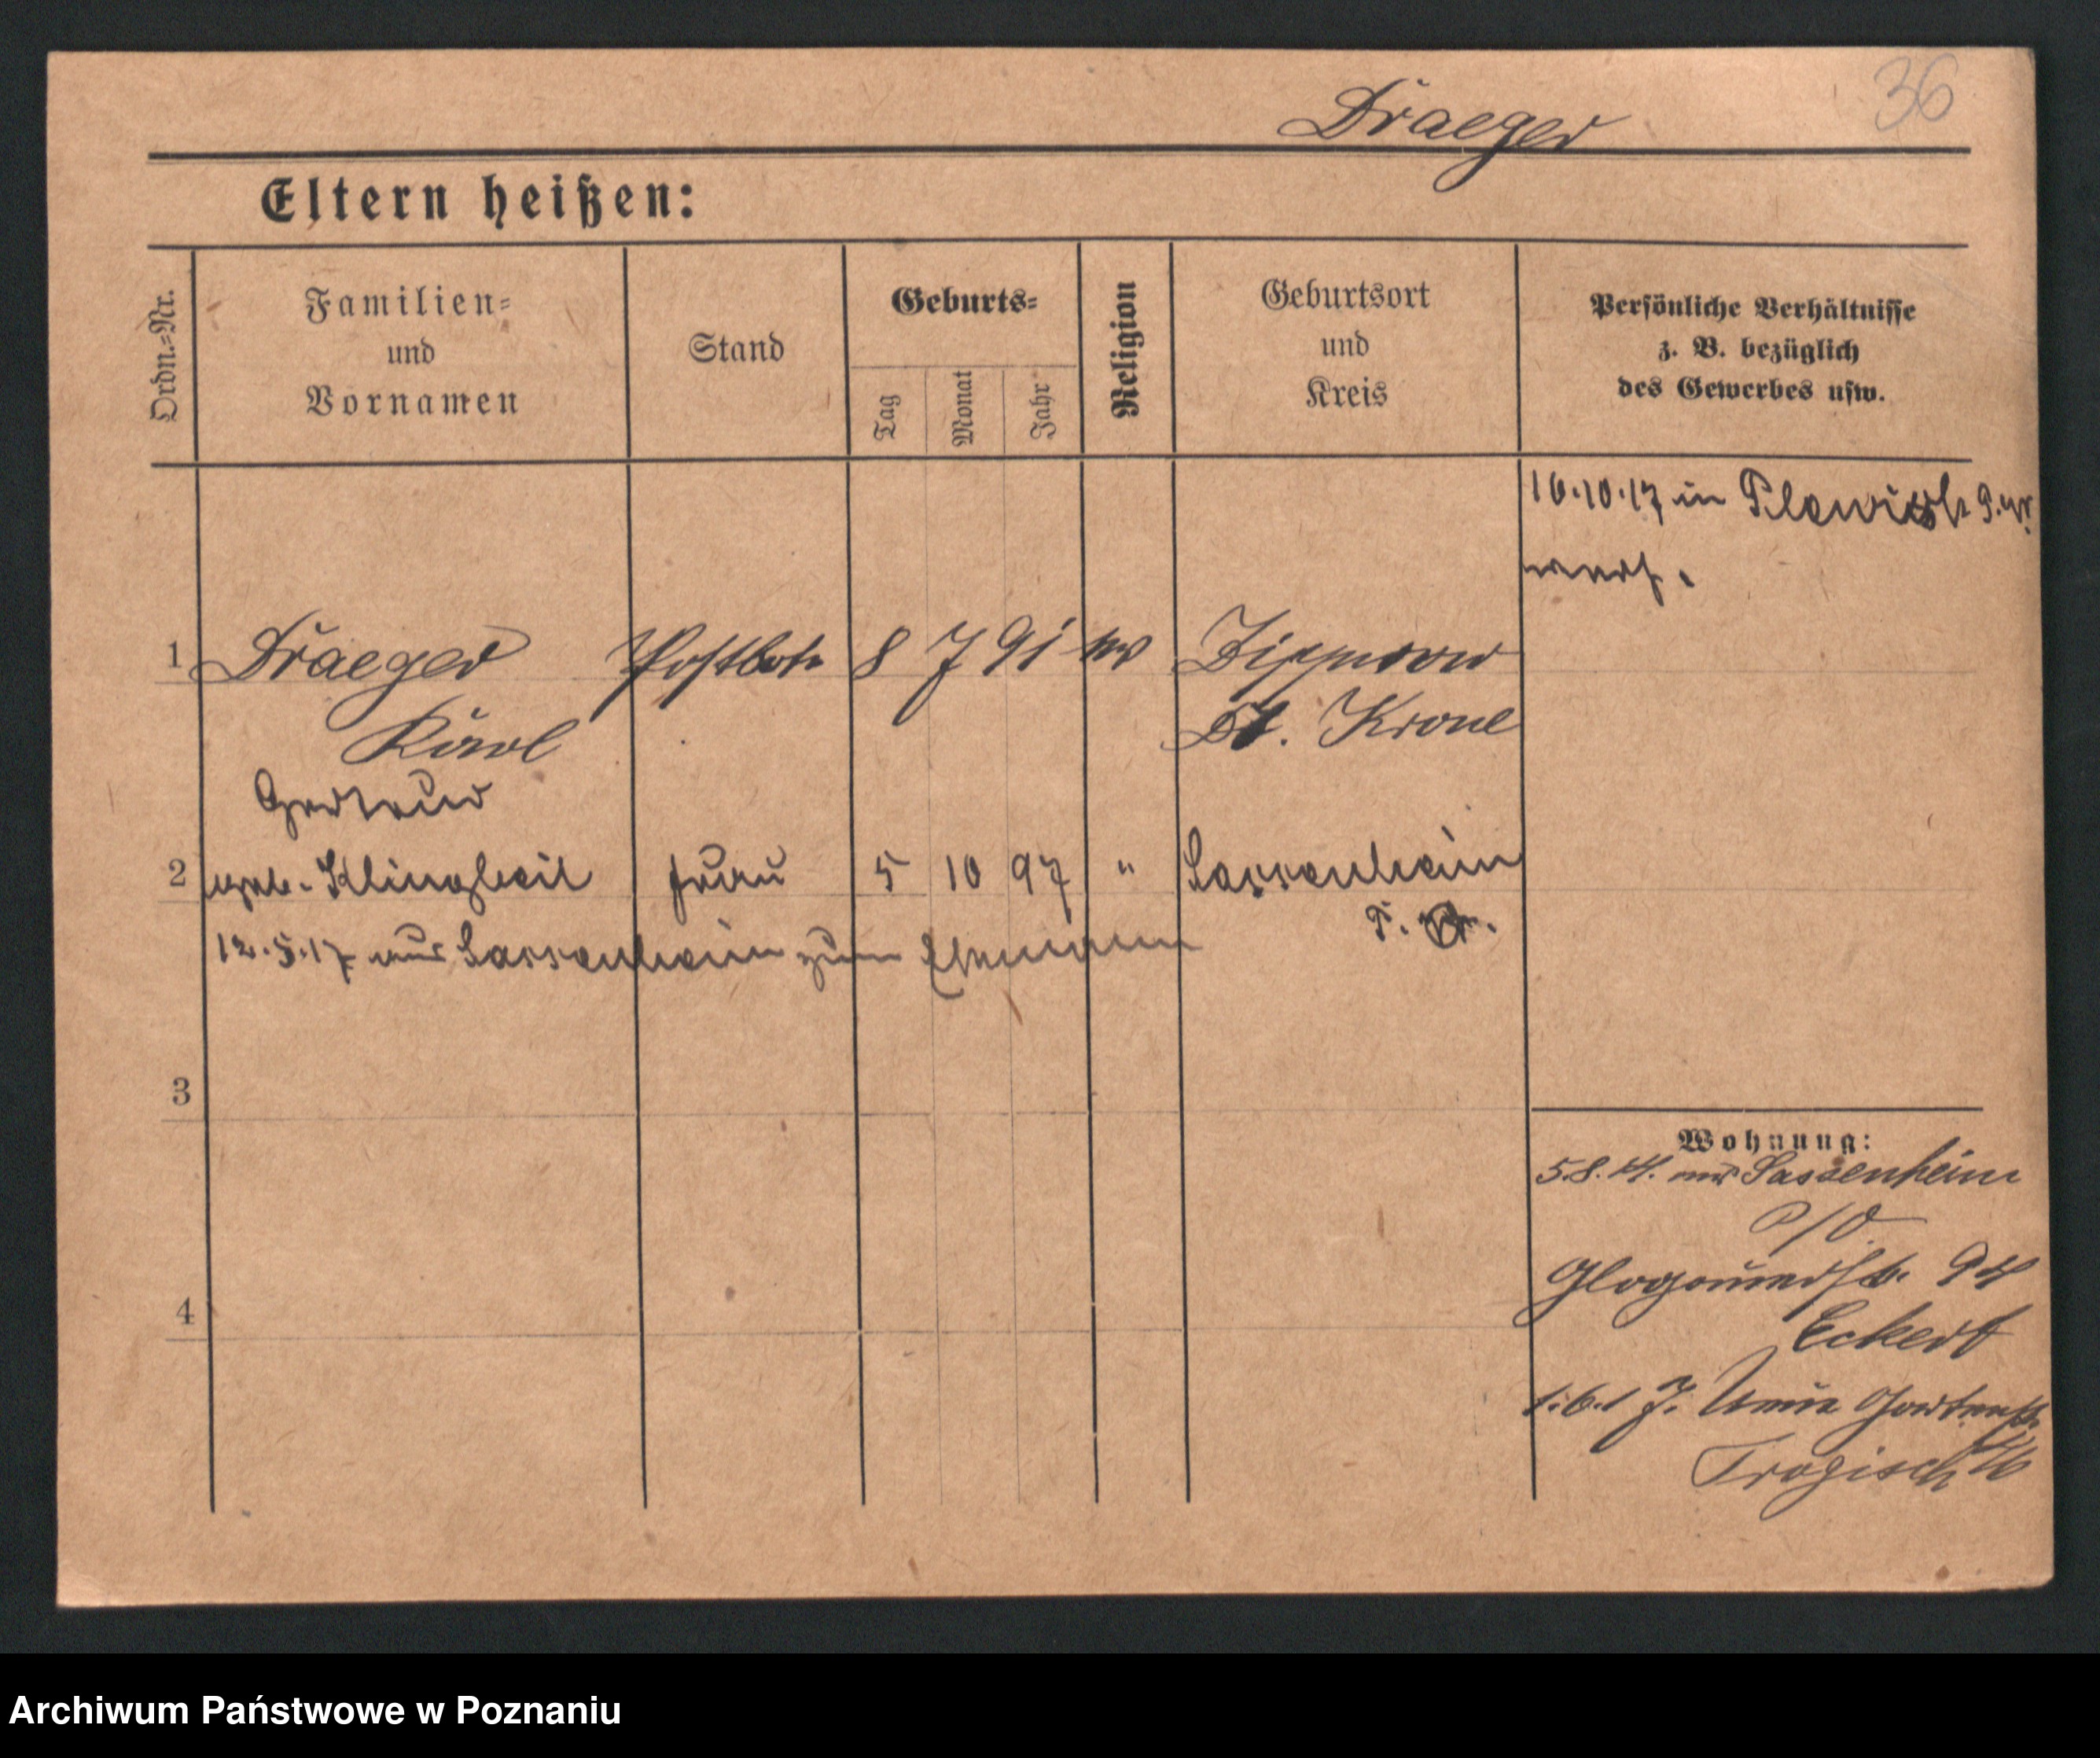 36
Draeger
Eltern heißen:
Ordn.=Nr.
Familien=
und
Vornamen
Stand
Geburts=
Tag
Monat
Jahr
Religion
Geburtsort
und
Kreis
Persönliche Verhältnisse
z. B. bezüglich
des Gewerbes usw.
16.10.17 in
1 Draeger Postbote 8 7 91 Zippnow
Karl Dt. Krone
Gertrud
2 geb. Klingbeil Frau 5 10 97 " Sassenheim
12.5.17 aus Sassenheim zum Ehemann
3
Wohnung:
5.8.14. aus Sassenheim
P/O
Glogauerstr. 94
4
Eckert
1.6.17. Neue Gartenstr.
Trogisch 46
Archiwum Państwowe w Poznaniu